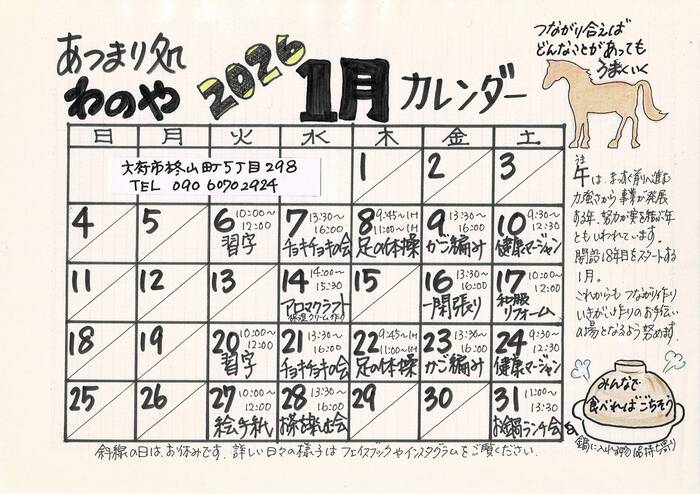 あつまり処
わのや
2026
1月
カレンダー
つながり合えば
どんなことがあっても
うまくいく
日 月 火 水 木 金 土
大府市柊山町5丁目298
TEL 090 6070 2924
1 2 3
4 5
6 10:00~12:00 習字
7 13:30~16:00 チョキチョキの会
8 9:45~1H 11:00~1H 足の体操
9 13:30~16:00 かご編み
10 9:30~12:30 健康マージャン
11 12 13
14 14:00~15:30 アロマクラフト
15
16 13:30~16:00 一閑張り
17 10:00~12:00 和服リフォーム
18 19
20 10:00~12:00 習字
21 13:30~16:00 チョキチョキの会
22 9:45~1H 11:00~1H 足の体操
23 13:30~16:00 かご編み
24 9:30~12:30 健康マージャン
25 26
27 10:00~12:00 絵手紙
28 13:30~16:00 お茶を楽しむ会
29 30
31 11:00~13:30 お鍋ランチ会
午は、まっすぐ前へ進む
力強さから事業が発展
する年、努力が実を結ぶ年
ともいわれています。
開設18年目をスタートする
1月。
これからもつながり作り
いきがい作りのお手伝い
の場となるよう努めます。
みんなで
食べればごちそう
斜線の日は、お休みです。詳しい日々の様子はフェイスブックやインスタグラムをご覧ください。